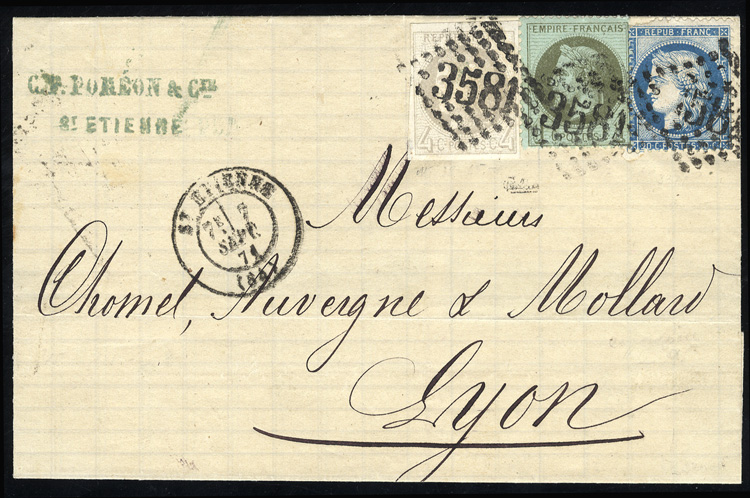 CH. POMÉON & CIE
ST ETIENNE
4 CENTIMES 4
3581
EMPIRE FRANÇAIS
3581
REPUB. FRANC.
3581
ST ETIENNE
7E 7
SEPT.
71
(84)
Messieurs
Chomel, Auvergne & Mollard
Lyon